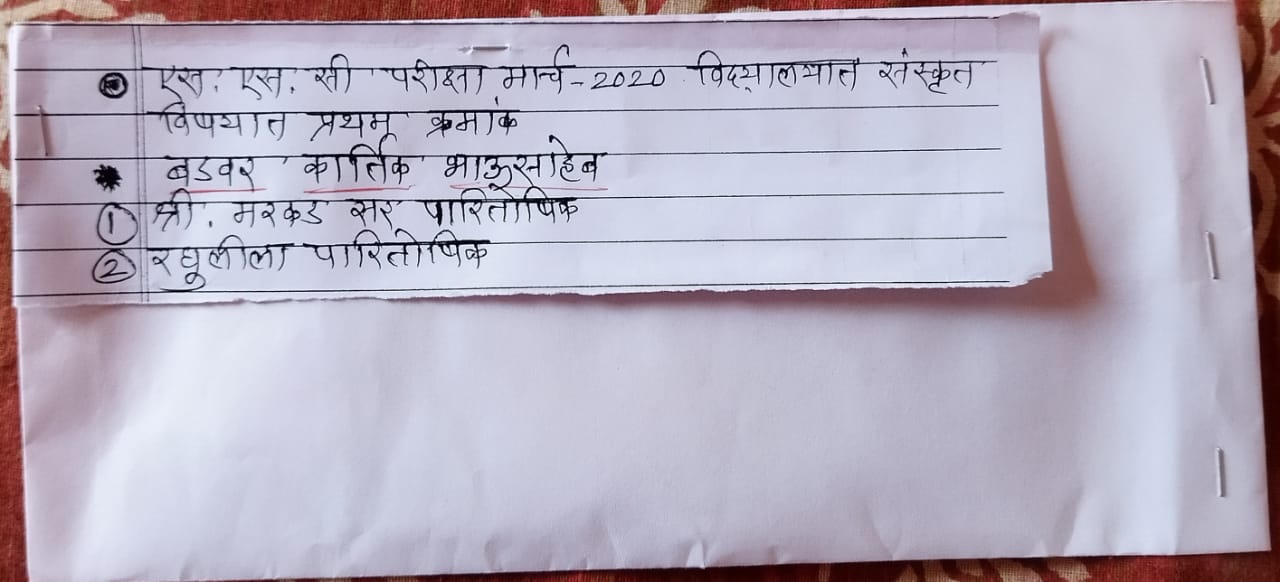 एस. एस. सी परीक्षा मार्च-2020 विद्यालयात संस्कृत
विषयात प्रथम क्रमांक
* बडवर कार्तिक भाऊसाहेब
① श्री. मरकड सर पारितोषिक
② रघुलीला पारितोषिक